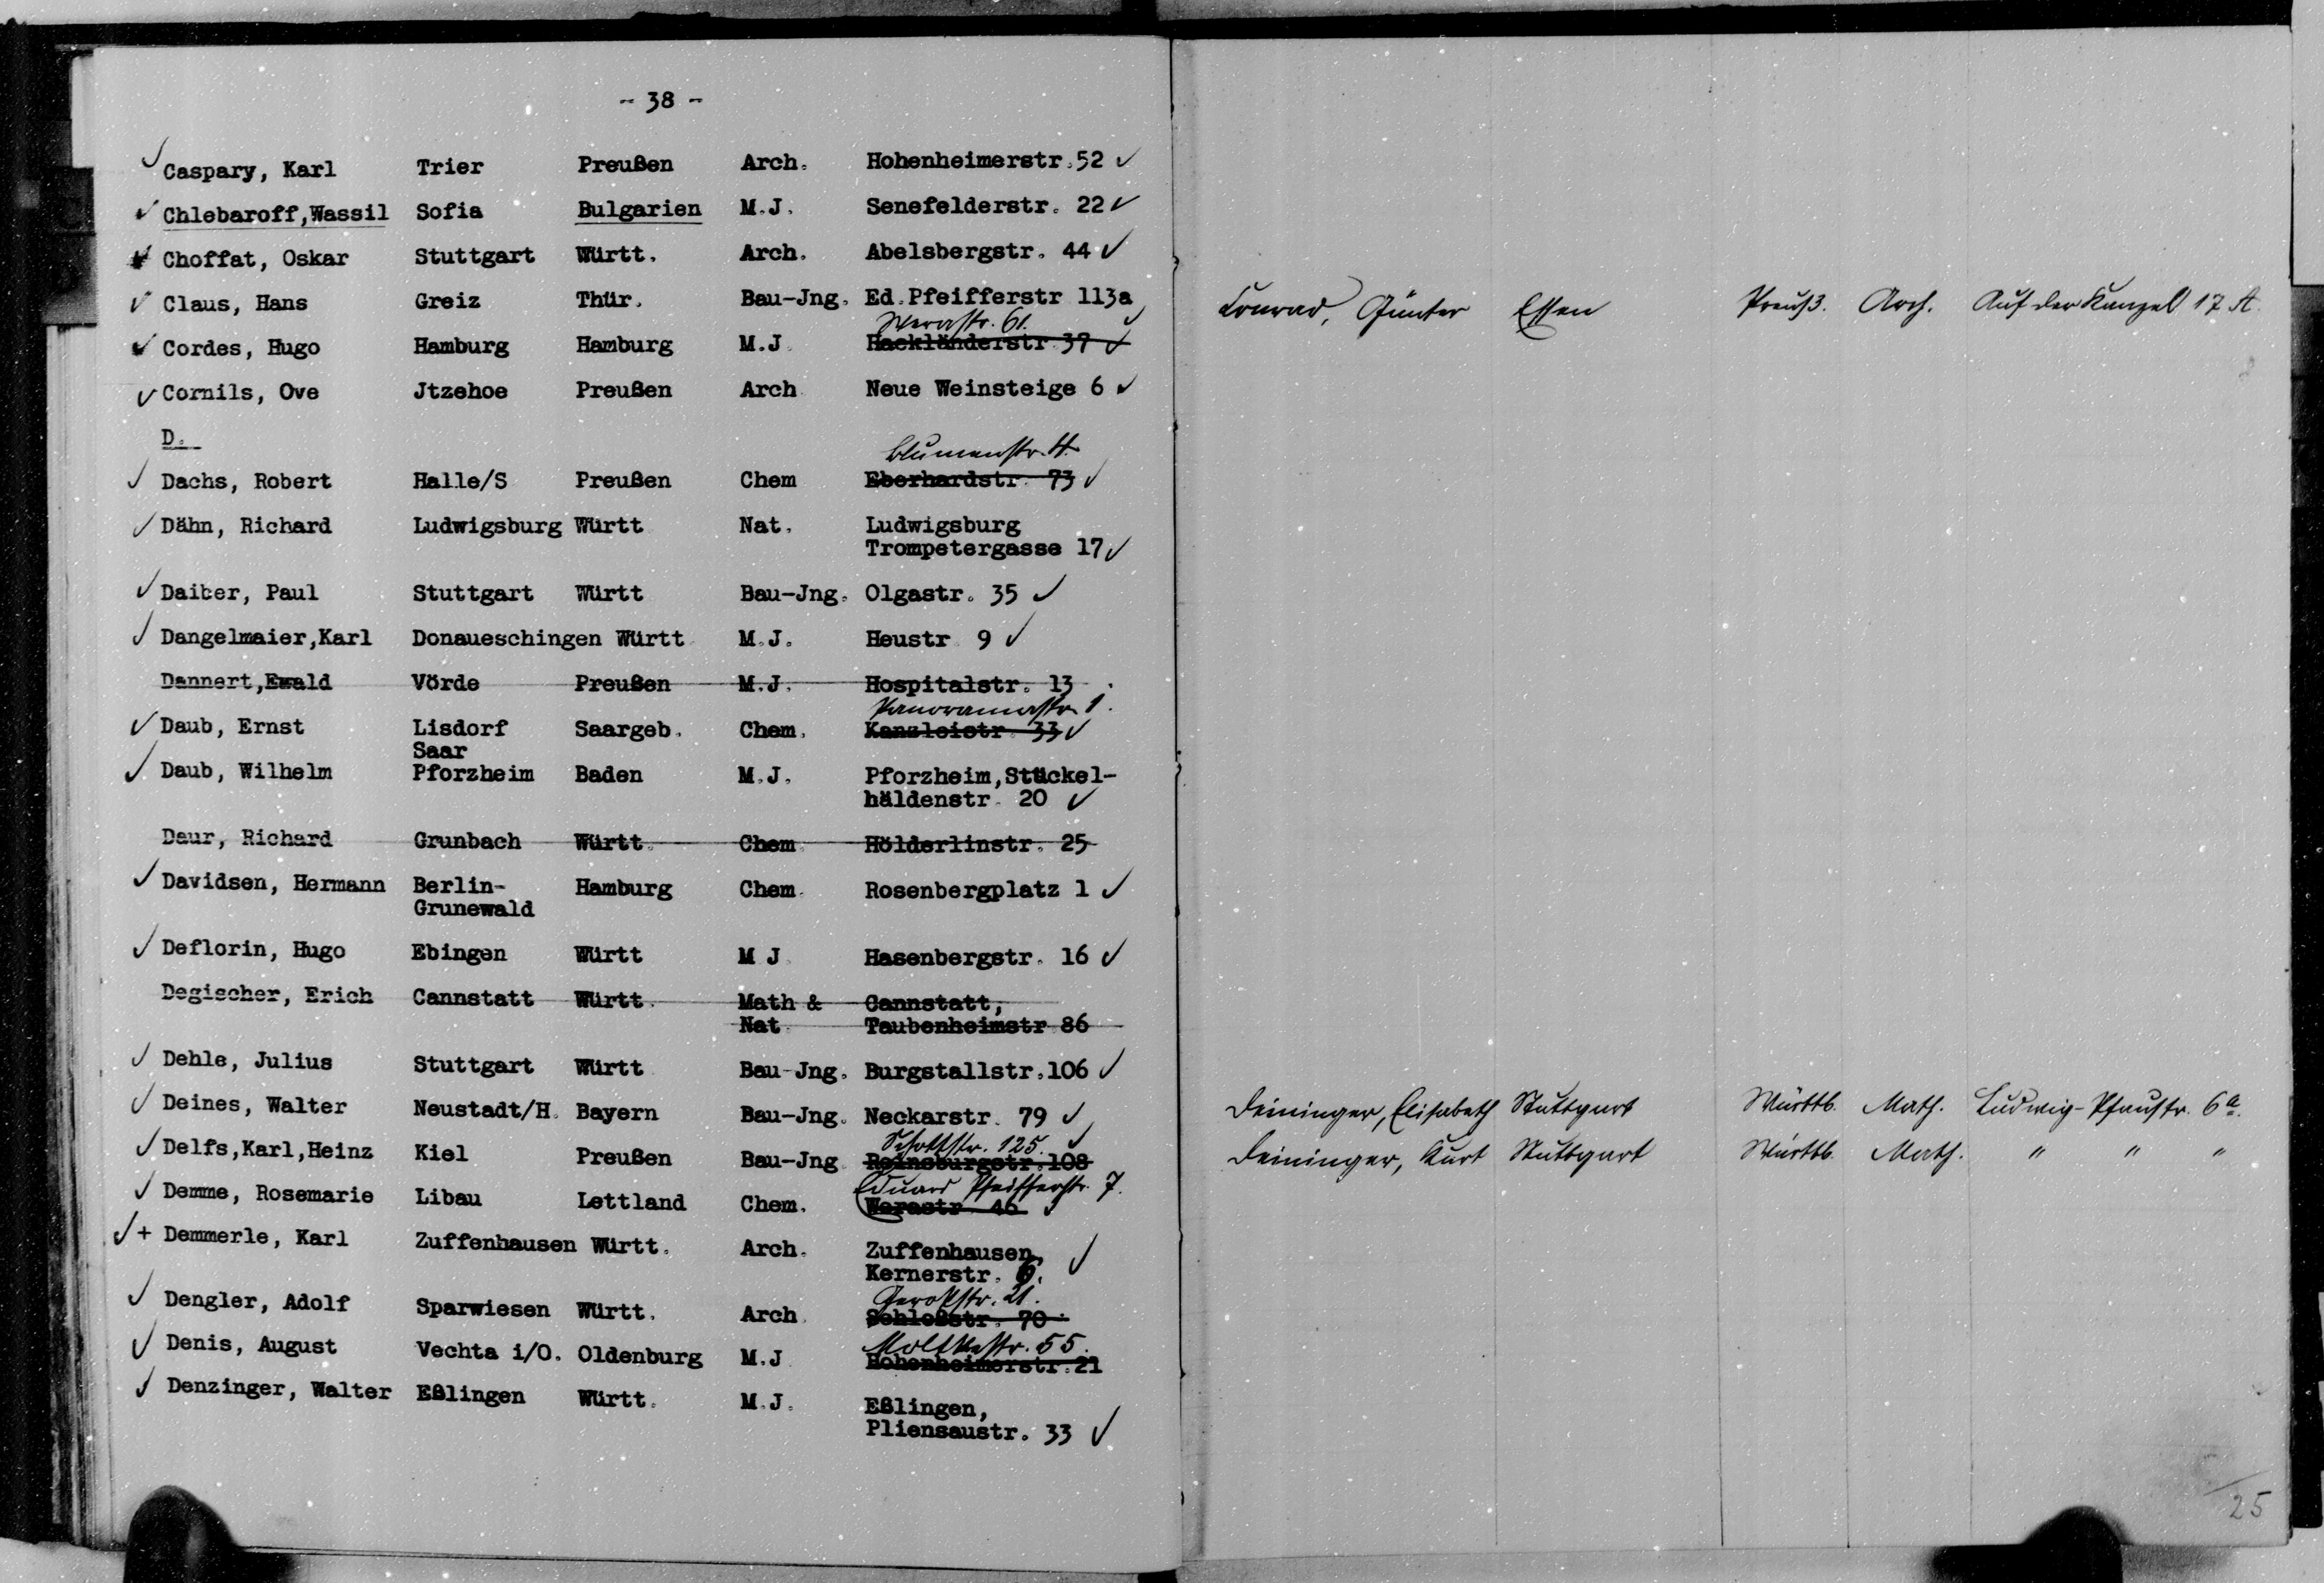 - 38 -
Caspary, Karl Trier Preußen Arch. Hohenheimerstr. 52 ✓
Chlebaroff,Wassil Sofia Bulgarien M.J. Senefelderstr. 22 ✓
Choffat, Oskar Stuttgart Württ. Arch. Abelsbergstr. 44 ✓
Claus, Hans Greiz Thür. Bau-Jng. Ed.Pfeifferstr 113a
Werastr. 61.
Cordes, Hugo Hamburg Hamburg M.J Hackländerstr 37 ✓
Cornils, Ove Jtzehoe Preußen Arch Neue Weinsteige 6 ✓
D.
Blumenstr. 4.
Dachs, Robert Halle/S Preußen Chem Eberhardstr. 73 ✓
Dähn, Richard Ludwigsburg Württ Nat. Ludwigsburg
Trompetergasse 17 ✓
Daiber, Paul Stuttgart Württ Bau-Jng. Olgastr. 35 ✓
Dangelmaier,Karl Donaueschingen Württ M.J. Heustr 9 ✓
Dannert,Ewald Vörde Preußen M.J. Hospitalstr. 13
Panoramastr. 1.
Daub, Ernst Lisdorf Saargeb. Chem. Kanzleistr 33 ✓
Saar
Daub, Wilhelm Pforzheim Baden M.J. Pforzheim,Stückel-
häldenstr. 20 ✓
Daur, Richard Grunbach Württ. Chem. Hölderlinstr. 25
Davidsen, Hermann Berlin- Hamburg Chem. Rosenbergplatz 1 ✓
Grunewald
Deflorin, Hugo Ebingen Württ M J Hasenbergstr. 16 ✓
Degischer, Erich Cannstatt Württ. Math & Cannstatt,
Nat Taubenheimstr 86
Dehle, Julius Stuttgart Württ Bau-Jng. Burgstallstr.106 ✓
Deines, Walter Neustadt/H. Bayern Bau-Jng. Neckarstr. 79 ✓
Schottstr. 125. ✓
Delfs,Karl,Heinz Kiel Preußen Bau-Jng Reinsburgstr.108
Eduard Pfeifferstr. 7.
Demme, Rosemarie Libau Lettland Chem. Werastr 46 ✓
+ Demmerle, Karl Zuffenhausen Württ. Arch. Zuffenhausen,
Kernerstr. 6. ✓
Gerokstr. 21.
Dengler, Adolf Sparwiesen Württ. Arch Schloßstr. 70
Moltkestr. 55.
Denis, August Vechta i/O. Oldenburg M.J Hohenheimerstr.21
Denzinger, Walter Eßlingen Württ. M.J. Eßlingen,
Pliensaustr. 33 ✓
Conrad, Günter Essen Preuß. Arch. Auf der Kanzel 17 A.
Deininger, Elisabeth Stuttgart Württb. Math. Ludwig-Pfaustr. 6a.
Deininger, Kurt Stuttgart Württb. Math. " " "
25